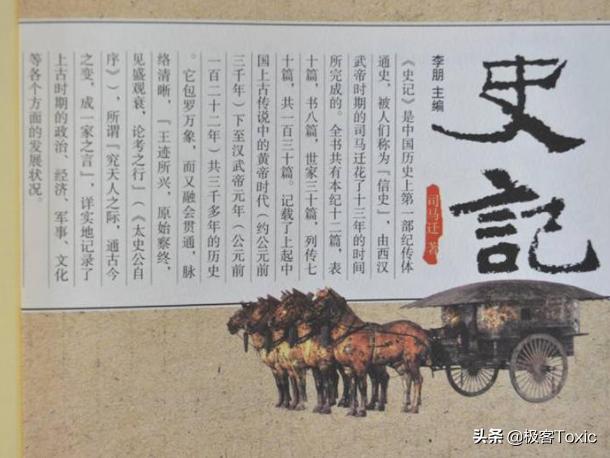 史記
司马迁 著
李朋 主编
《史记》是中国历史上第一部纪传体
通史，被人们称为『信史』，由西汉
武帝时期的司马迁花了十三年的时间
所完成的。全书共有本纪十二篇，表
十篇，书八篇，世家三十篇，列传七
十篇，共一百三十篇。记载了上起中
国上古传说中的黄帝时代（约公元前
三千年）下至汉武帝元年（公元前
一百二十二年）共三千多年的历史
。它包罗万象，而又融会贯通，脉
络清晰，『王迹所兴，原始察终，
见盛观衰，论考之行』（《太史公自
序》），所谓『究天人之际，通古今
之变，成一家之言』，详实地记录了
上古时期的政治、经济、军事、文化
等各个方面的发展状况。
头条 @极客Toxic